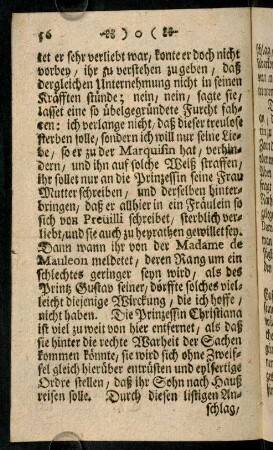 56 )o(
tet er sehr verliebt war, konte er doch nicht
vorbey, ihr zu verstehen zu geben, daß
dergleichen Unternehmung nicht in seinen
Kräfften stünde; nein, nein, sagte sie,
lasset eine so übelgegründete Furcht fah-
ren: ich verlange nicht, daß dieser treulose
sterben solle, sondern ich will nur seine Lie-
be, so er zu der Marquisin hat, verhin-
dern, und ihn auf solche Weiß straffen,
ihr sollet nur an die Prinzessin seine Frau
Mutter schreiben, und derselben hinter-
bringen, daß er allhier in ein Fräulein so
sich von Preüilli schreibet, sterblich ver-
liebt, und sie auch zu heyrathen gewillet sey.
Dann wann ihr von der Madame de
Mauleon meldetet, deren Rang um ein
schlechtes geringer seyn wird, als des
Printz Gustav seiner, dörffte solches viel-
leicht diejenige Wirckung, die ich hoffe,
nicht haben. Die Prinzessin Christiana
ist viel zu weit von hier entfernet, als daß
sie hinter die rechte Warheit der Sachen
kommen könnte, sie wird sich ohne Zweif-
fel gleich hierüber entrüsten und eylfertige
Ordre stellen, daß ihr Sohn nach Hauß
reisen solle. Durch diesen listigen An-
schlag,